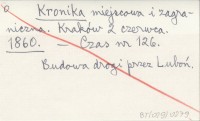 Kronika miejscowa i zagra-
niczna. Kraków 2 czerwca.
1860. — Czas nr 126.
Budowa drogi przez Luboń.